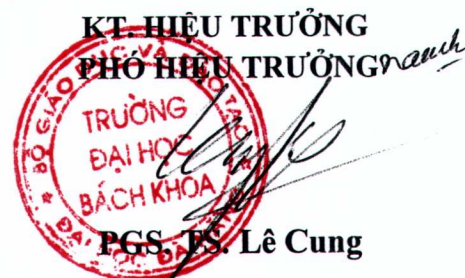 KT. HIỆU TRƯỞNG
PHÓ HIỆU TRƯỞNG
BỘ GIÁO DỤC VÀ ĐÀO TẠO
TRƯỜNG
ĐẠI HỌC
BÁCH KHOA
ĐẠI HỌC
PGS. TS. Lê Cung